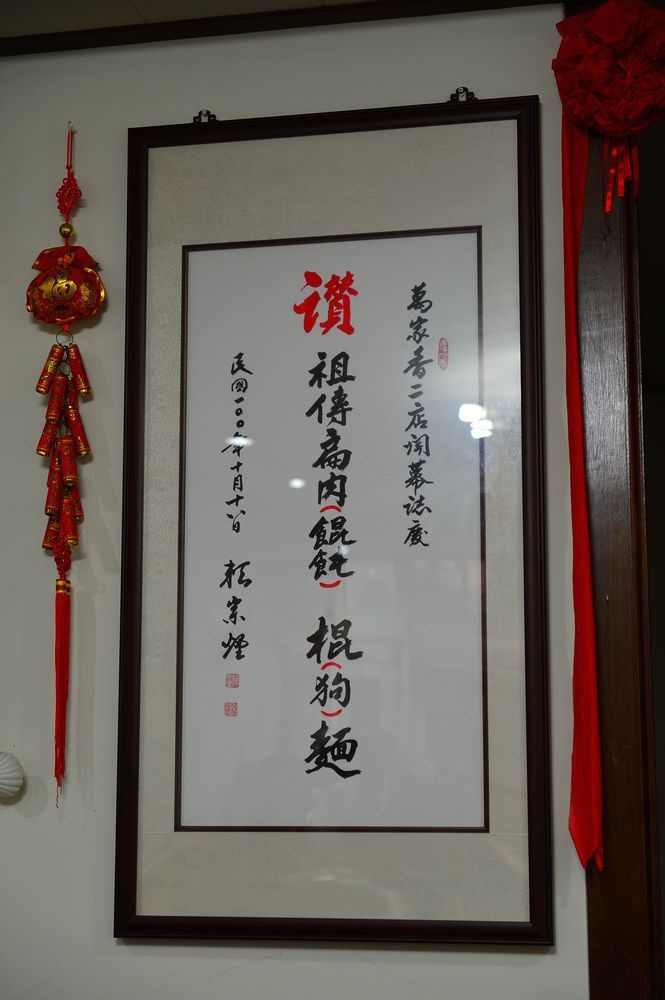 萬家香二店開幕誌慶
讚
祖傳扁肉(餛飩) 棍(狗)麵
民國一００年十月十八日 賴宗煙